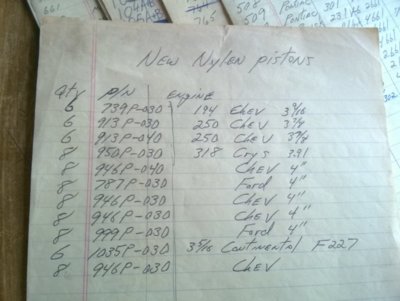 661
765
508
509
Pontiac 301
2314L 466
New Nylen pistons
Qty P/N Engine
6 739P-030 194 Chev 3 9/16
6 913P-030 250 Chev 3 7/8
6 913P-040 250 Chev 3 7/8
8 950P-030 318 Crys 391
8 946P-040 Chev 4"
8 787P-030 Ford 4"
8 946P-030 Chev 4"
8 946P-030 Chev 4"
8 999P-030 Ford 4"
6 1035P-030 Continental F227
8 946P-030 Chev